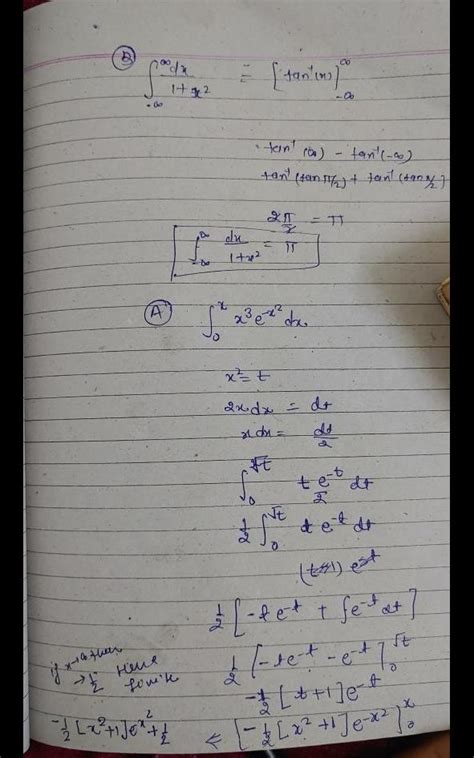 B
∫_{-∞}^{∞} dx/(1+x²) = [tan⁻¹(x)]_{-∞}^{∞}
tan⁻¹(∞) - tan⁻¹(-∞)
tan⁻¹(tan π/2) + tan⁻¹(tan π/2)
2π/2 = π
∫_{-∞}^{∞} dx/(1+x²) = π
A
∫_0^x x³e^{-x²}dx
x² = t
2x dx = dt
x dx = dt/2
∫_0^{√t} t e^{-t}/2 dt
1/2 ∫_0^{√t} t e^{-t} dt
1/2 [-te^{-t} + ∫e^{-t}dt]
1/2 [-te^{-t} - e^{-t}]_0^{√t}
-1/2 [t+1]e^{-t}
if x→∞ then
→ 1/2
-1/2[x²+1]e^{x²}+1/2 ⇐ [-1/2[x²+1]e^{-x²}]_0^x